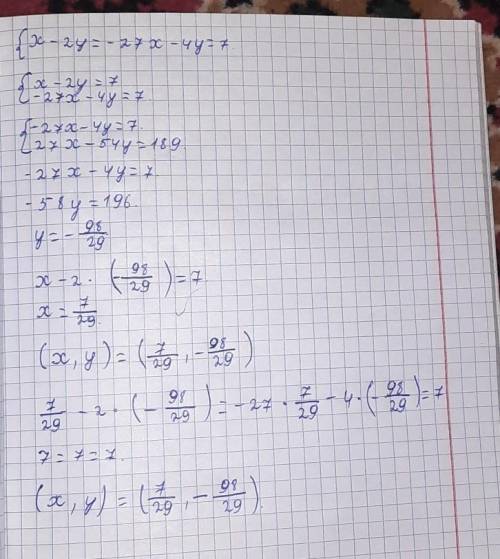 {x - 2y = -27x - 4y = 7
{x - 2y = 7
-27x - 4y = 7
{-27x - 4y = 7.
27x - 54y = 189.
-27x - 4y = 7.
-58y = 196.
y = -98/29
x - 2 · (-98/29) = 7.
x = 7/29.
(x, y) = (7/29, -98/29)
7/29 - 2 · (-98/29) = -27 · 7/29 - 4 · (-98/29) = 7
7 = 7 = 7.
(x, y) = (7/29, -98/29).